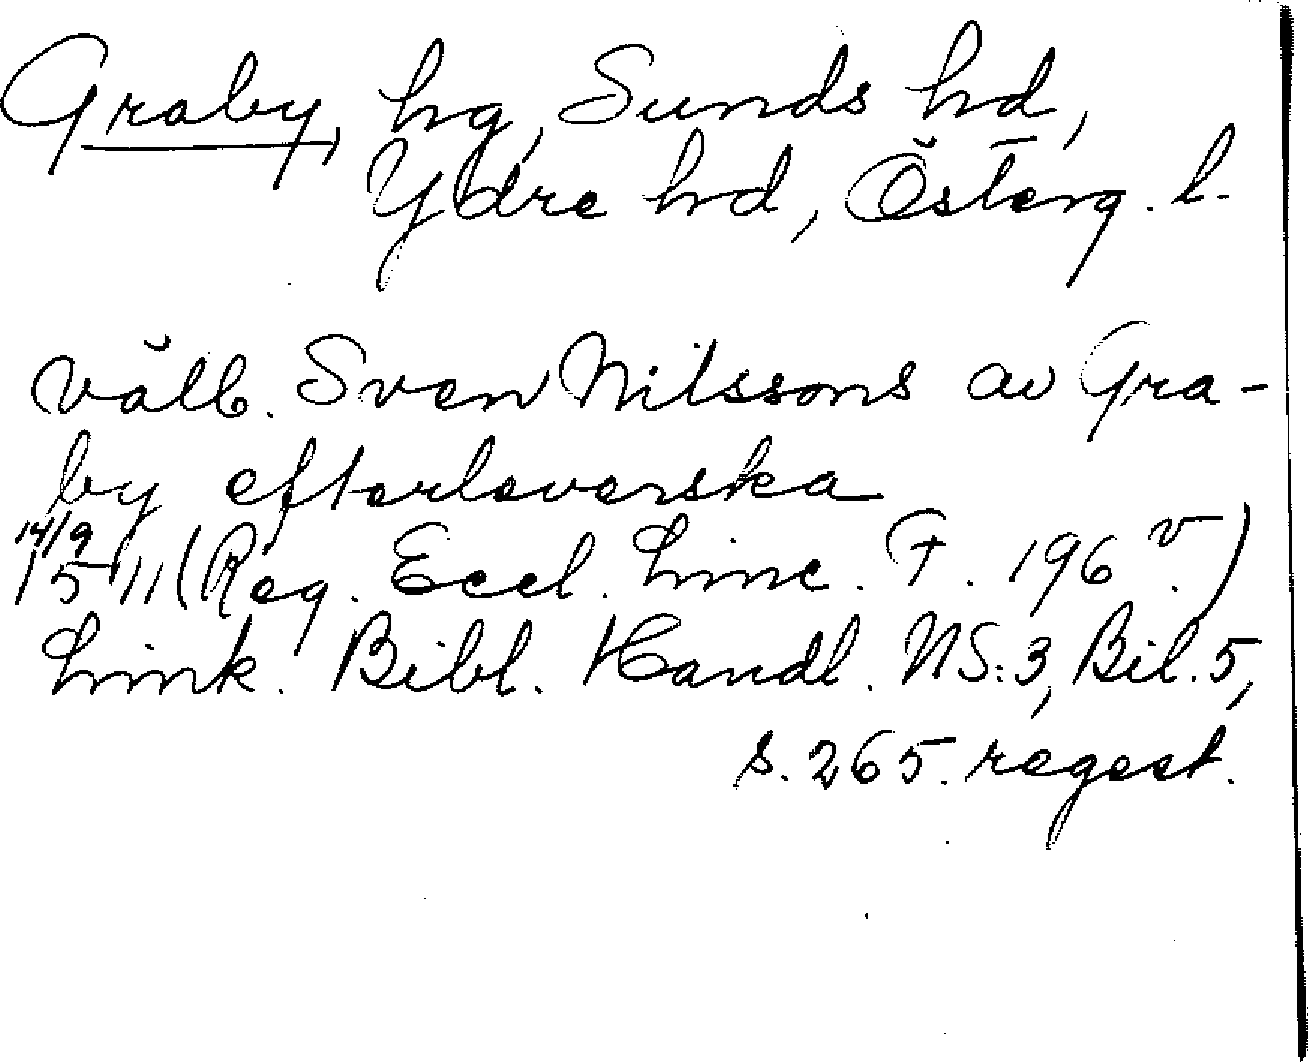 Graby, hg, Sunds hd,
Ydre hd, Österg. l.
välb. Sven Nilssons av Gra-
by efterleverska
14/9
1511 (Reg. Eccl. Linc. F. 196 v.)
Link. Bibl. Handl. NS:3, Bil. 5,
s. 265. regest.